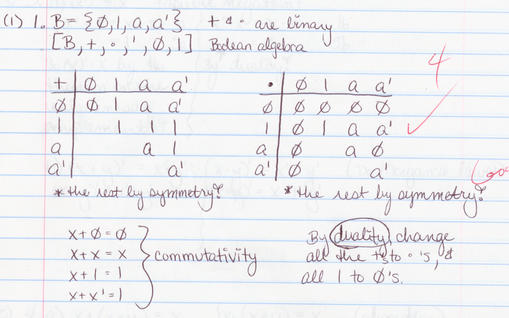 (1) 1. B = {∅, 1, a, a'} + & · are binary
[B, +, ·, ', ∅, 1] Boolean algebra
4
+ ∅ 1 a a' · ∅ 1 a a'
∅ ∅ 1 a a' ∅ ∅ ∅ ∅ ∅
1 1 1 1 1 ∅ 1 a a'
a a 1 a ∅ a ∅
a' a' a' ∅ a'
* the rest by symmetry? * the rest by symmetry?
x + ∅ = ∅
x + x = x
x + 1 = 1
x + x' = 1
commutativity
By duality, change
all the +'s to ·'s, &
all 1 to ∅'s.